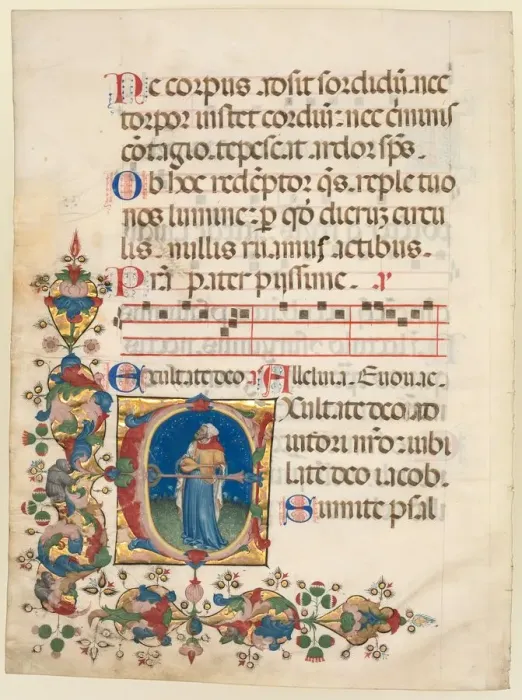 Ne corpus adsit sordidū. nec
torpor instet cordiū: nec cͥminis
cōtagio. tepescat ardor sp̄s.
Ob hoc redēptor q̄s. reple tuo
nos lumine: ꝑ qd̓ dieruꝫ circu
lis. nullis ruamus actibus.
Pr̄a pater pijssime.
Exultate deo Alleluia. Euouae.
EXultate deo ad
iutori nr̄o: iubi
late deo iacob.
Sumite psal